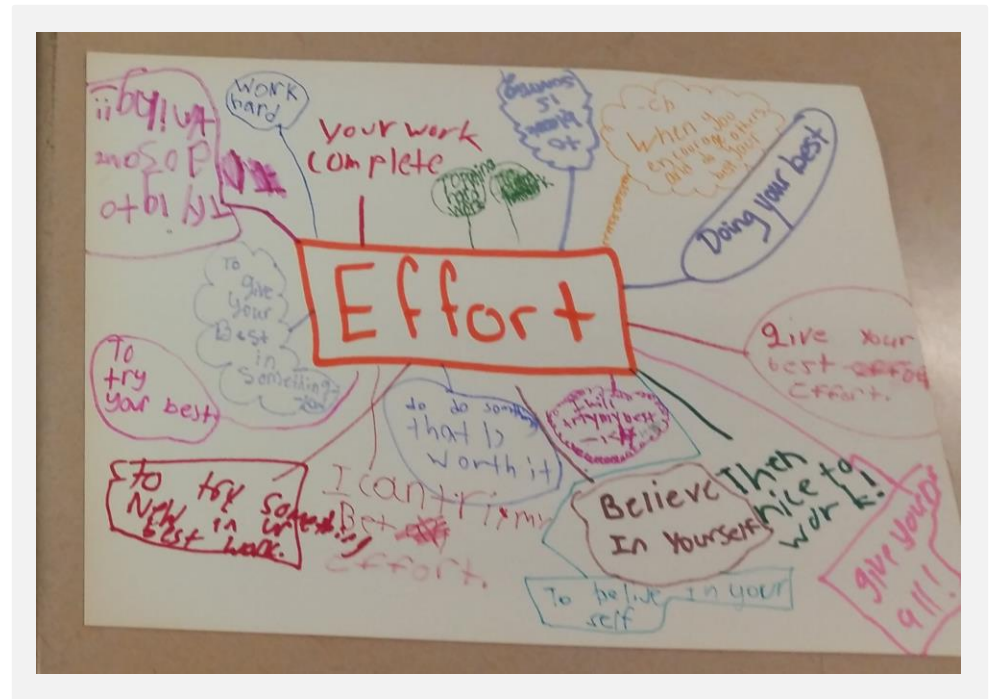 Effort
Trying to
do some
thing!!
work
hard
your work
complete
is
to
When you
encourage others
and do
your
best
Doing your best
To
give
your
Best
in
something
To
try
your best
give your
best effort
effort.
to do something
that is
worth it
I will
try my best
to try something
New in ur
best work.
I can tri my
Bet
effort.
Believe
In Yourself
Then
nice to
work!
To belive in your
self
give your
all!